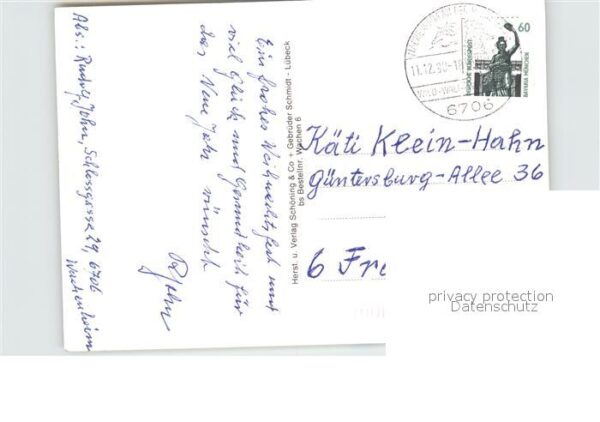 Abs.: Rudolf John, Schlossgasse 29, 6706
Wachenheim
Ein frohes Weihnachtsfest und
viel Glück und Gesundheit für
das Neue Jahr wünscht
R John
Herst. u. Verlag Schöning & Co + Gebrüder Schmidt - Lübeck
bs Bestellnr. Wachen 6
11.12.90-18
6706
60
DEUTSCHE BUNDESPOST
BAVARIA MÜNCHEN
Käti Klein-Hahn
Güntersburg-Allee 36
6 Fr
privacy protection
Datenschutz